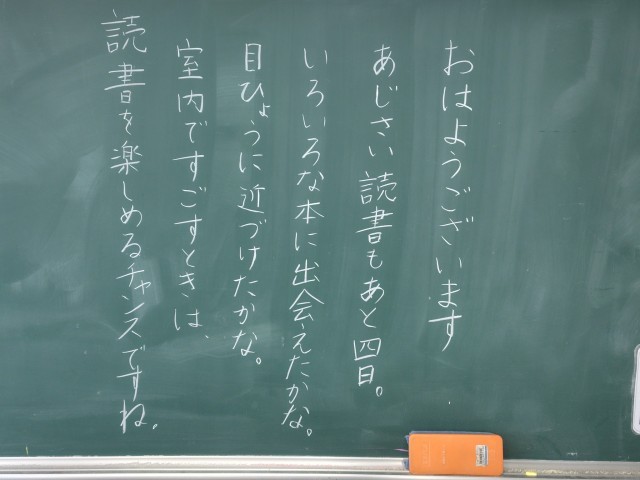 おはようございます
あじさい読書もあと四日。
いろいろな本に出会えたかな。
目ひょうに近づけたかな。
室内ですごすときは、
読書を楽しめるチャンスですね。